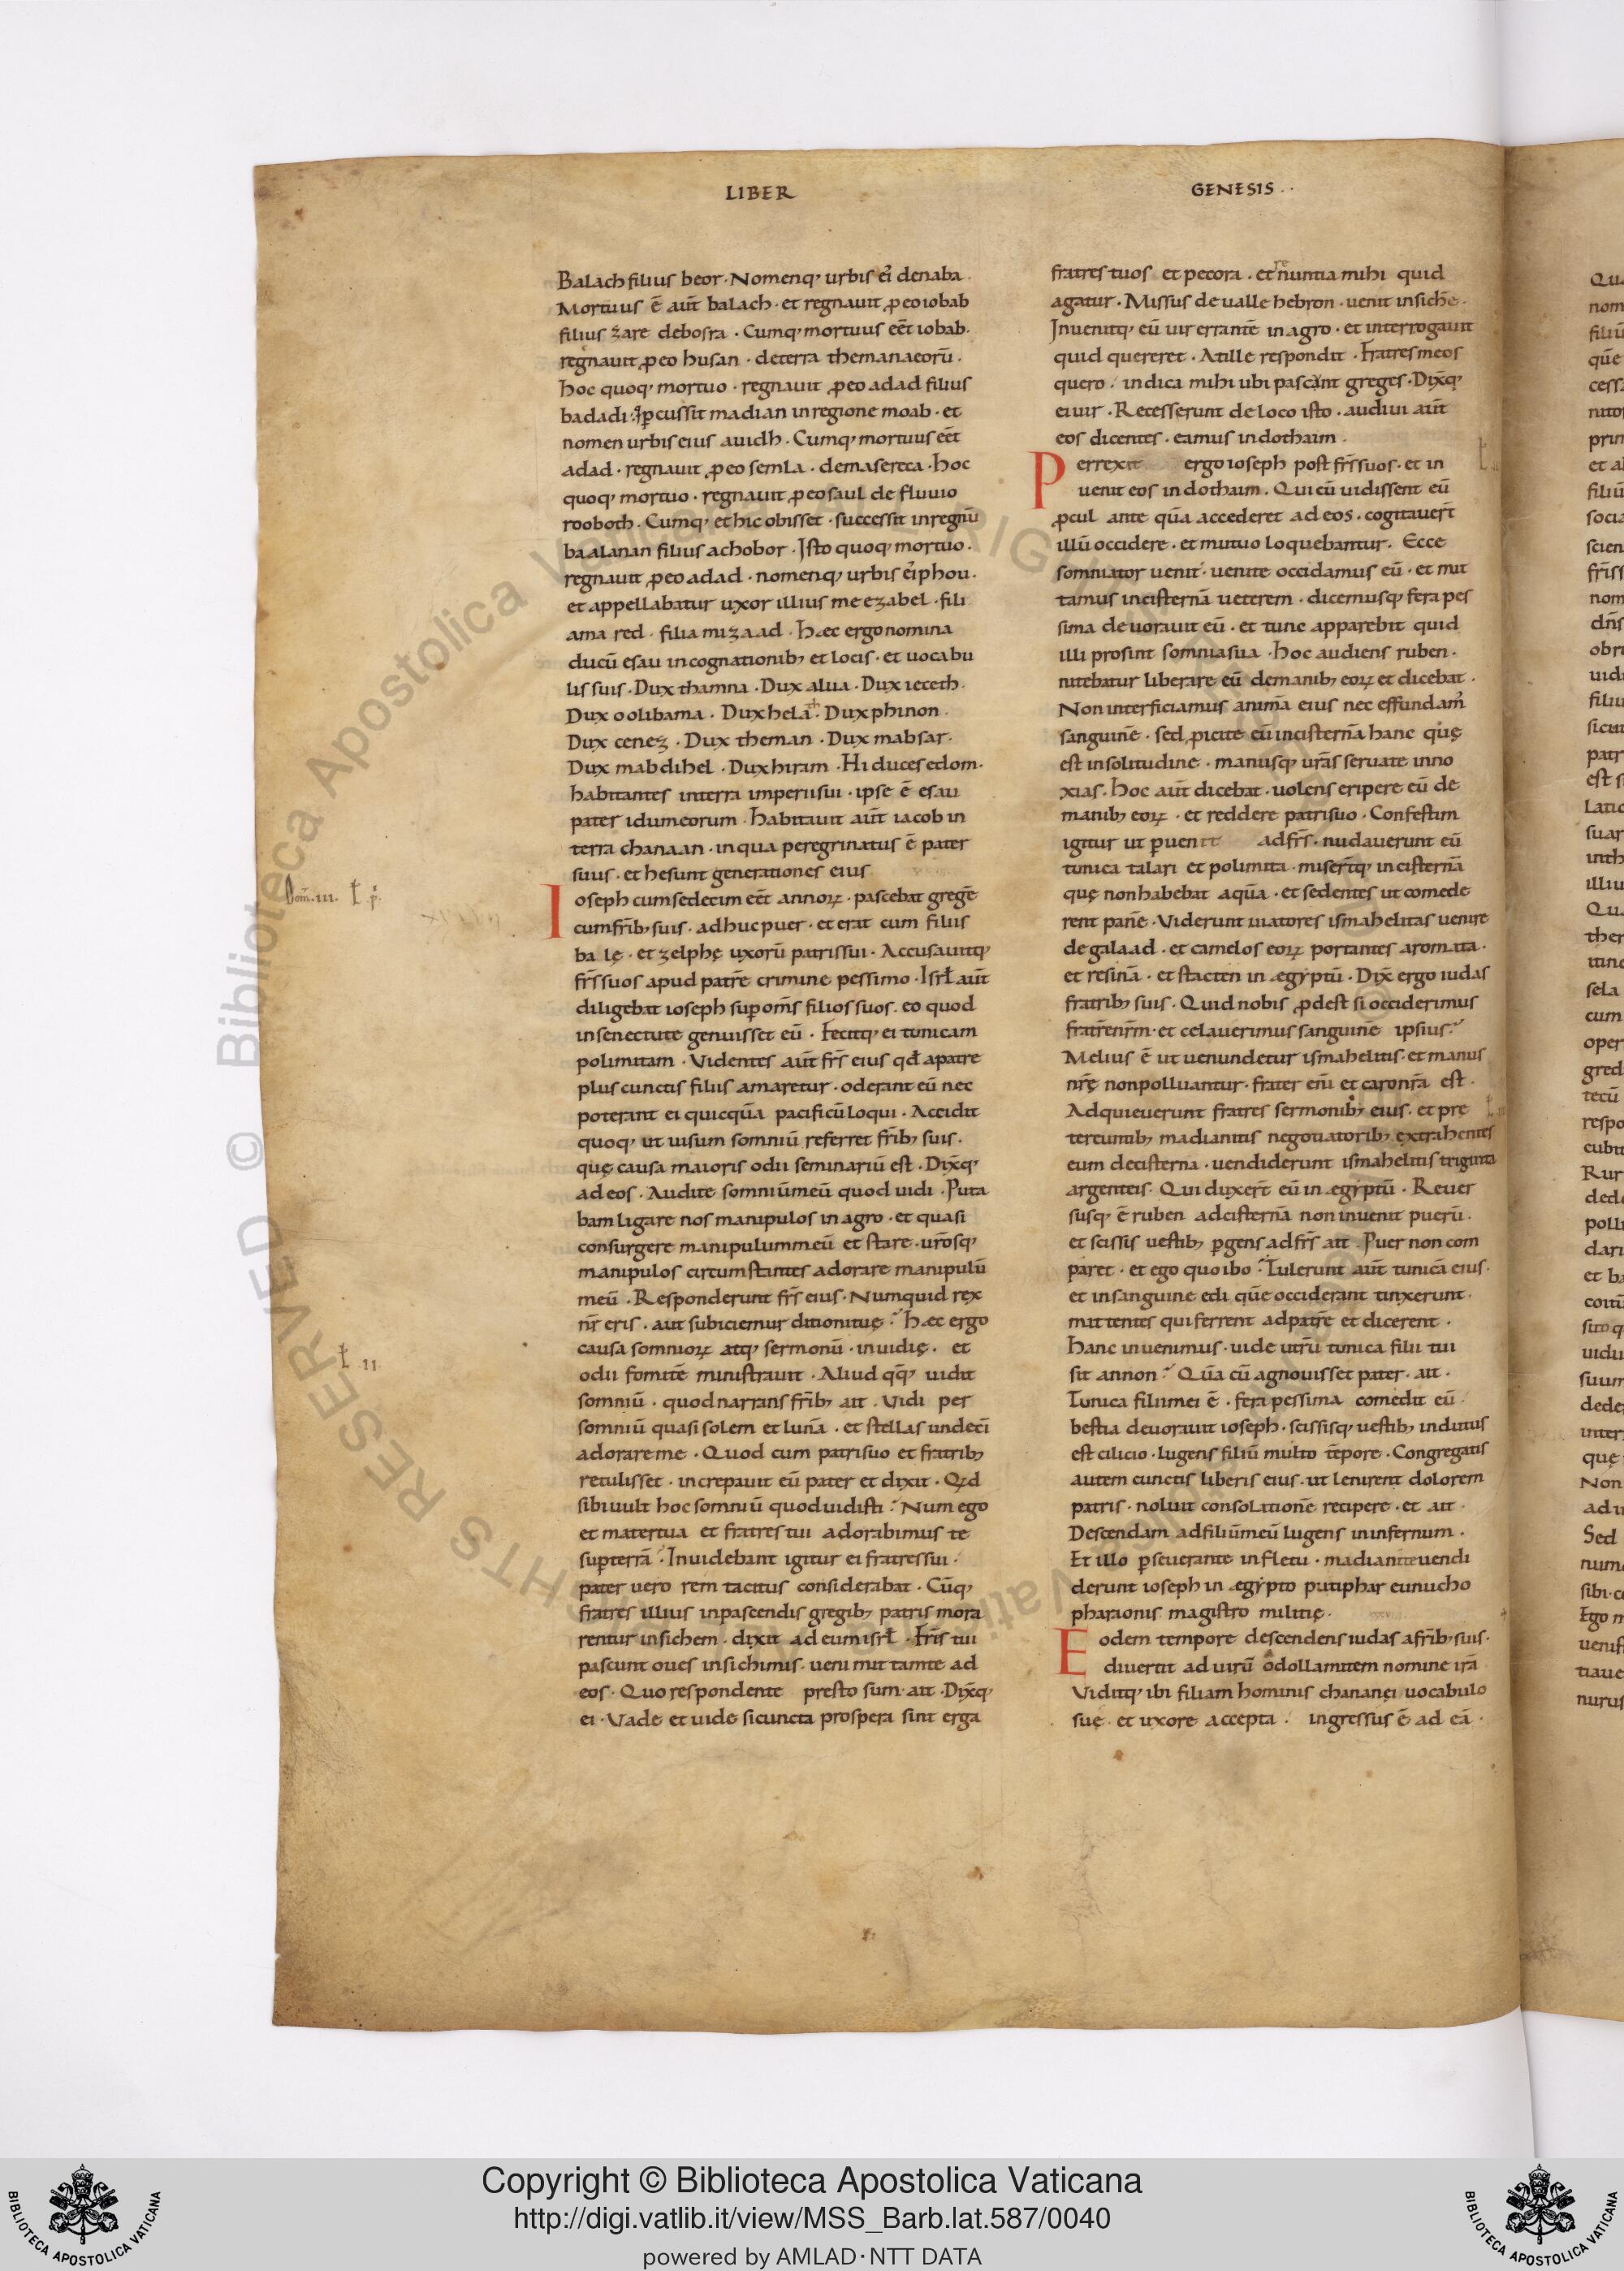 LIBER
GENESIS . .
Balach filius beor · Nomenq; urbis ei' denaba ·
Mortuus ē aut̄ balach · et regnauit ꝓ eo iobab
filius zare debosra · Cumq; mortuus eēt iobab ·
regnauit ꝓ eo husan · deterra themanaeorū ·
hoc quoq; mortuo · regnauit ꝓ eo adad filius
badadi · ꝑcussit madian in regione moab · et
nomen urbis eius auidh · Cumq; mortuus eēt
adad · regnauit ꝓ eo semla · demasereca · hoc
quoq; mortuo · regnauit ꝓ eo saul de fluuio
rooboth · Cumq; et hic obisset · successit in regnū
baalanan filius achobor · Isto quoq; mortuo ·
regnauit ꝓ eo adad · nomenq; urbis ei' phou ·
et appellabatur uxor illius meezabel · fili
ama red · filia mizaad · haec ergo nomina
ducū esau in cognationib; et locis · et uocabu
lis suis · Dux thamna · Dux alua · Dux ieceth ·
Dux oolibama · Dux hela · Dux phinon ·
Dux cenez · Dux theman · Dux mabsar ·
Dux mabdihel · Dux hiram · Hi duces edom ·
habitantes interra imperii sui · ipse ē esau
pater idumeorum · habitauit aut̄ iacob in
terra chanaan · in qua peregrinatus ē pater
suus · et he sunt generationes eius
Ioseph cum sedecim eēt annoꝝ · pascebat gregē
cum fr̄ib; suis · adhuc puer · et erat cum filiis
balę · et zelphę uxorū patris sui · Accusauitq;
fr̄s suos apud patrē crimine pessimo · Isrł aut̄
diligebat ioseph suꝑ om̄s filios suos · eo quod
in senectute genuisset eū · Fecitq; ei tunicam
polimitam · Videntes aut̄ fr̄s eius qđ apatre
plus cunctis filiis amaretur · oderant eū nec
poterant ei quicquā pacificū loqui · Accidit
quoq; ut uisum somniū referret fr̄ib; suis ·
quę causa maioris odii seminariū est · Dix̄q;
ad eos · Audite somniū meū quod uidi · Puta
bam ligare nos manipulos in agro · et quasi
consurgere manipulum meū et stare · ur̄osq;
manipulos circumstantes adorare manipulū
meū · Responderunt fr̄s eius · Numquid rex
nr̄ eris · aut subiciemur ditioni tuę ? haec ergo
causa somnioꝝ atq; sermonū · inuidię · et
odii fomitē ministrauit · Aliud qq̄; uidit
somniū · quod narrans fr̄ib; ait · Vidi per
somniū quasi solem et lunā · et stellas undecī
adorare me · Quod cum patri suo et fratrib;
retulisset · increpauit eū pater et dixit · Qid
sibi uult hoc somniū quod uidisti ? Num ego
et mater tua et fratres tui adorabimus te
suꝑ terrā ? Inuidebant igitur ei fratres sui ·
pater uero rem tacitus considerabat · Cūq;
fratres illius in pascendis gregib; patris mora
rentur in sichem · dixit ad eum isrł · Fr̄s tui
pascunt oues in sichimis · ueni mittam te ad
eos · Quo respondente presto sum · ait · Dix̄q;
ei · Vade et uide si cuncta prospera sint erga
fratres tuos et pecora · et re nuntia mihi quid
agatur · Missus de ualle hebron · uenit in sichē ·
Inuenitq; eū uir errantē in agro · et interrogauit
quid quereret · At ille respondit · Fratres meos
quero · indica mihi ubi pascant greges · Dix̄q;
ei uir · Recesserunt de loco isto · audiui aut̄
eos dicentes · eamus in dothaim ·
Perrexit ergo ioseph post fr̄s suos · et in
uenit eos in dothaim · Qui cū uidissent eū
ꝓcul ante quā accederet ad eos · cogitauer̄t
illū occidere · et mutuo loquebantur · Ecce
somniator uenit · uenite occidamus eū · et mit
tamus in cisternā ueterem · dicemusq; fera pes
sima deuorauit eū · et tunc apparebit quid
illi prosint somnia sua · hoc audiens ruben ·
nitebatur liberare eū de manib; eoꝝ et dicebat ·
Non interficiamus animā eius nec effundam'
sanguinē · sed ꝓicite eū in cisternā hanc quę
est in solitudine · manusq; ur̄as seruate inno
xias · hoc aut̄ dicebat · uolens eripere eū de
manib; eoꝝ · et reddere patri suo · Confestim
igitur ut ꝑuenit ad fr̄s · nudauerunt eū
tunica talari et polimita · miser̄tq; in cisternā
quę non habebat aquā · et sedentes ut comede
rent panē · Viderunt uiatores ismahelitas uenire
de galaad · et camelos eoꝝ portantes aromata ·
et resinā · et stacten in ęgyptū · Dix̄ ergo iudas
fratrib; suis · Quid nobis ꝓdest si occiderimus
fratrē nr̄m · et celauerimus sanguinē ipsius ?
Melius ē ut uenundetur ismahelitis · et manus
nr̄ę non polluantur · frater eni et caro nr̄a est ·
Adquieuerunt fratres sermonib; eius · et pre
tereuntib; madianitis negotiatorib; extrahentes
eum decisterna · uendiderunt ismahelitis triginta
argenteis · Qui duxer̄t eū in ęgyptū · Reuer
susq; ē ruben ad cisternā non inuenit puerū ·
et scissis uestib; ꝑgens ad fr̄s ait · Puer non com
paret · et ego quo ibo ? Tulerunt aut̄ tunicā eius ·
et in sanguine edi quē occiderant tinxerunt ·
mittentes qui ferrent ad patrē et dicerent ·
hanc inuenimus · uide utrū tunica filii tui
sit annon ? Quā cū agnouisset pater · ait ·
Tunica filii mei ē · fera pessima comedit eū ·
bestia deuorauit ioseph · scissisq; uestib; indutus
est cilicio · lugens filiū multo tēpore · Congregatis
autem cunctis liberis eius · ut lenirent dolorem
patris · noluit consolationē recipere · et ait ·
Descendam ad filiū meū lugens in infernum ·
Et illo ꝑseuerante in fletu · madianite uendi
derunt ioseph in ęgypto putiphar eunucho
pharaonis magistro militię ·
Eodem tempore descendens iudas a fr̄ib; suis ·
diuertit ad uirū odollamitem nomine irā
Viditq; ibi filiam hominis chananęi uocabulo
suę · et uxore accepta · ingressus ē ad eā ·
© Biblioteca Apostolica Vaticana
RIGHTS RESERVED
Copyright © Biblioteca Apostolica Vaticana
http://digi.vatlib.it/view/MSS_Barb.lat.587/0040
powered by AMLAD·NTT DATA
BIBLIOTECA APOSTOLICA VATICANA
BIBLIOTECA APOSTOLICA VATICANA